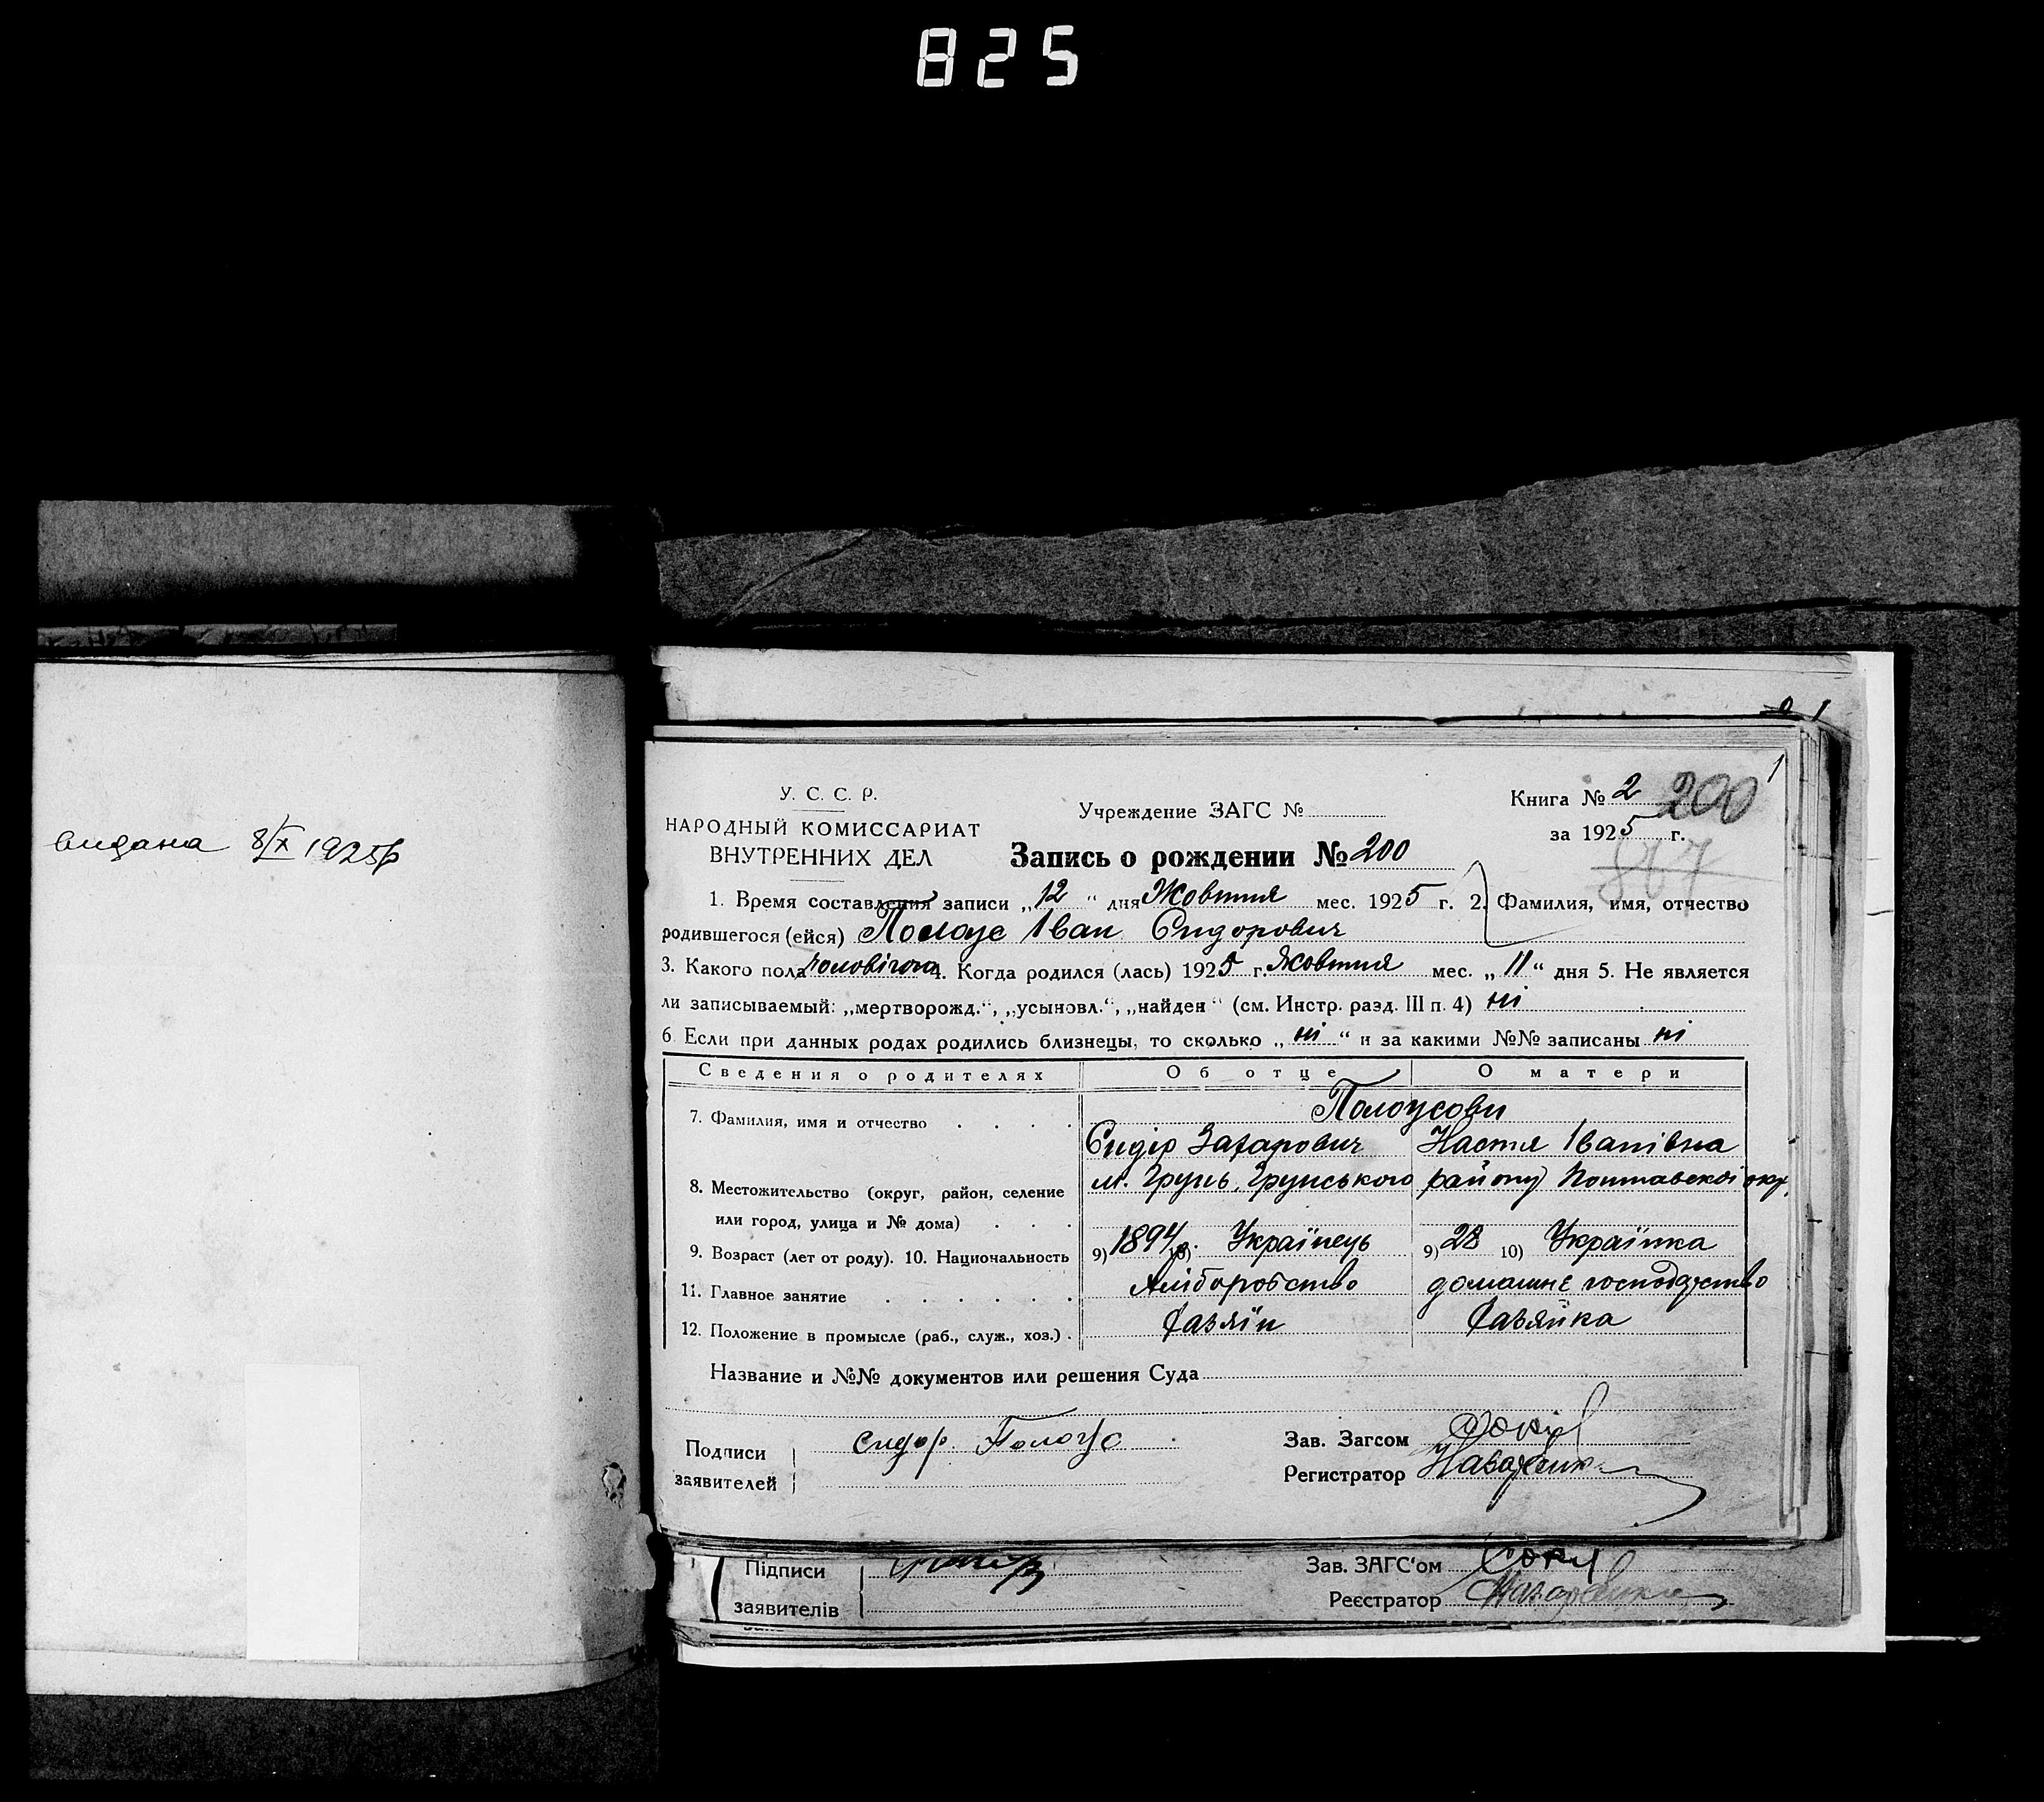 825
видана 8/X 1925р
1
У. С. С. Р.
НАРОДНЫЙ КОМИССАРИАТ
ВНУТРЕННИХ ДЕЛ
Учреждение ЗАГС №
Запись о рождении № 200
Книга № 2 200
за 1925 г.
1. Время составления записи „12“ дня Жовтня мес. 1925 г. 2. Фамилия, имя, отчество
родившегося (ейся) Полоус Іван Сидорович
3. Какого пола чоловічого 4. Когда родился (лась) 1925 г. Жовтня мес. „11“ дня 5. Не является
ли записываемый: „мертворожд.“, „усыновл.“, „найден“ (см. Инстр. разд. III п. 4) ні
6. Если при данных родах родились близнецы, то сколько „ні“ и за какими №№ записаны ні
Сведения о родителях Об отце О матери
Полоусови
7. Фамилия, имя и отчество . . . .
Сидір Захарович Настя Іванівна
8. Местожительство (округ, район, селение м. Грунь, Грунського району Полтавської окр.
или город, улица и № дома) . . .
9. Возраст (лет от роду). 10. Национальность 9) 1894 р. 10) Українець 9) 28 10) Українка
11. Главное занятие . . . . . . хліборобство домашнє господарство
12. Положение в промысле (раб., служ., хоз.) . хазяїн хазяйка
Название и №№ документов или решения Суда
Подписи
заявителей
Сидор Полоус
Зав. Загсом
Регистратор Назаренко
Підписи
заявителів
Зав. ЗАГС'ом
Реєстратор Назаренко